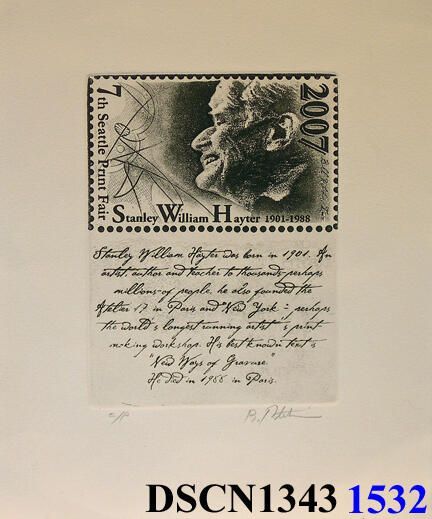 7th Seattle Print Fair
2007
Stanley William Hayter 1901-1988
Stanley William Hayter was born in 1901. An
artist, author and teacher to thousands perhaps
millions of people, he also founded the
Atelier 17 in Paris and New York - perhaps
the world's longest running artist's print
making workshop. His best known text is
"New Ways of Gravure."
He died in 1988 in Paris.
DSCN1343 1532